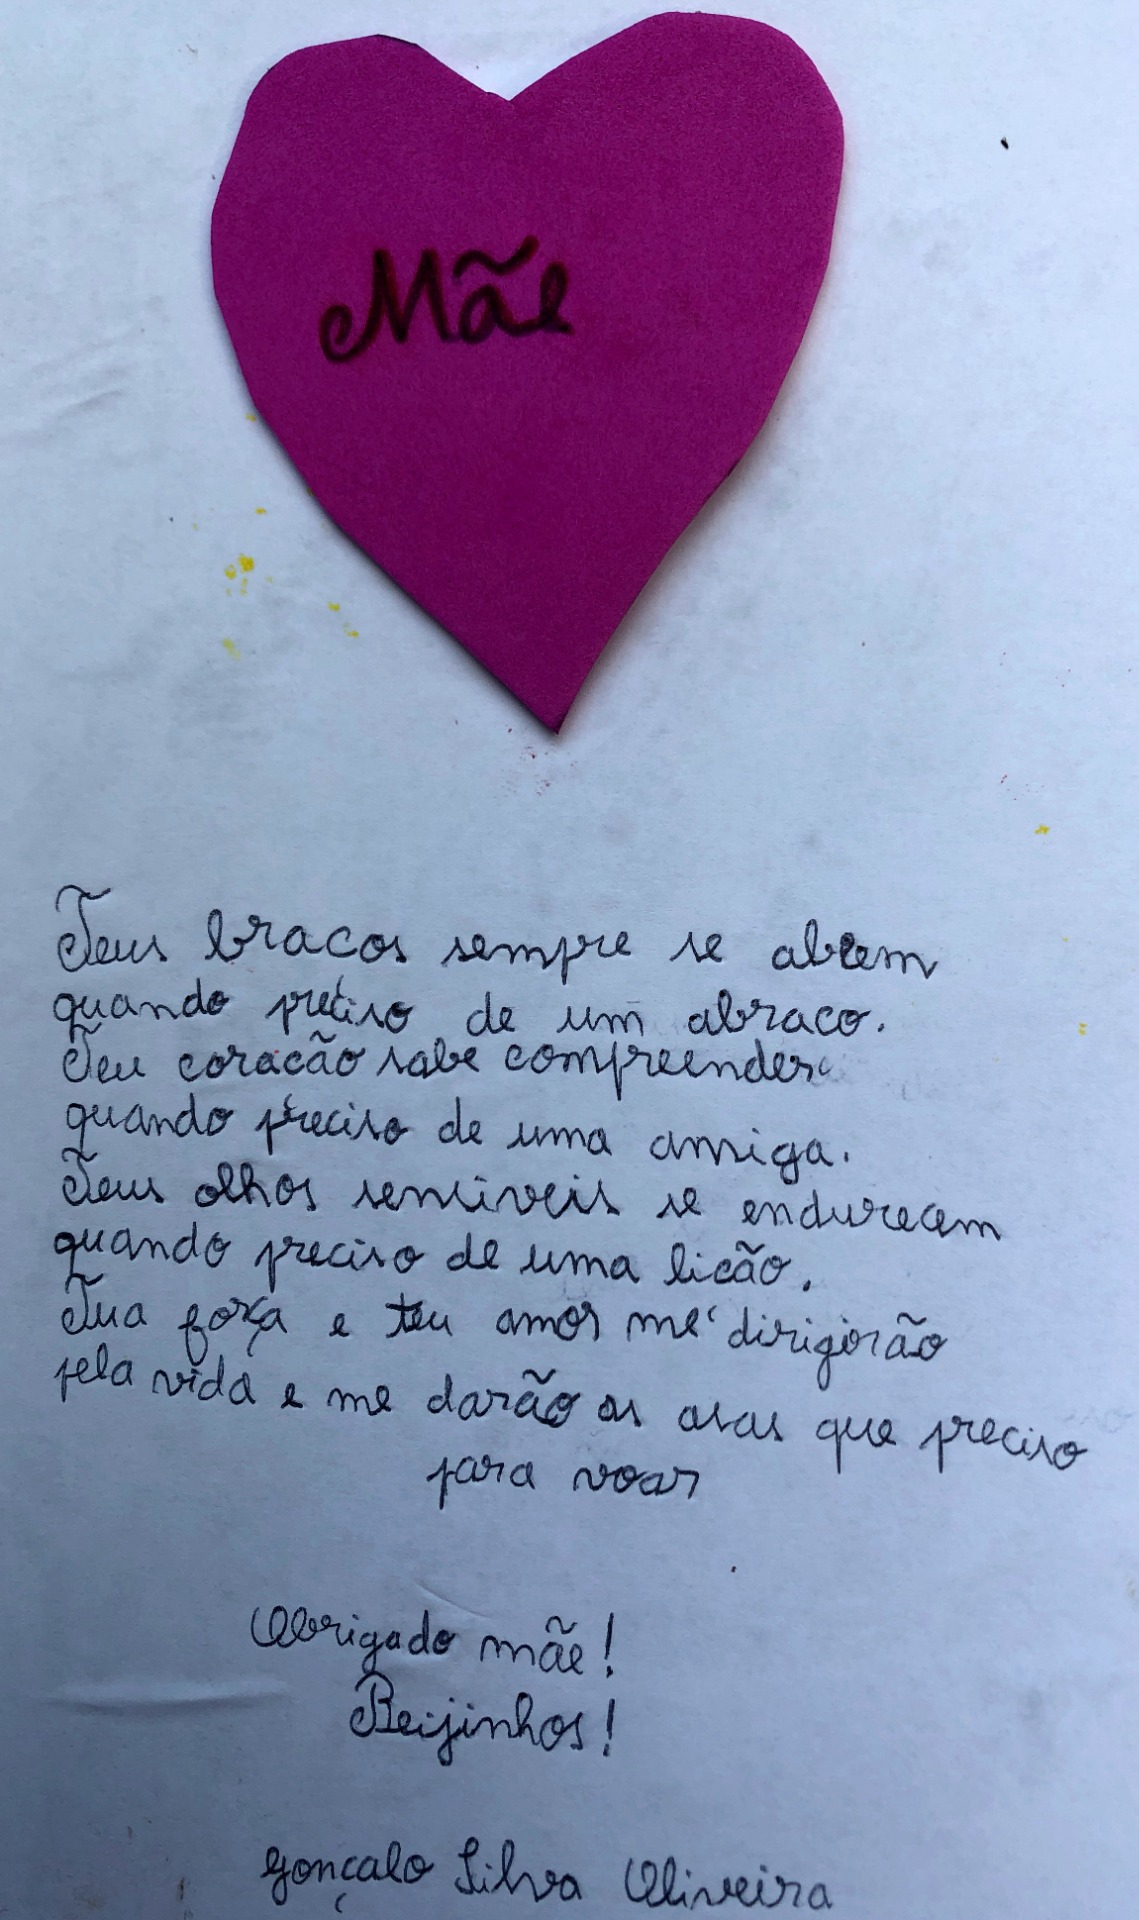 Mãe
Teus bracos sempre se abrem
quando preciso de um abraco.
Teu coracão sabe compreender
quando preciso de uma amiga.
Teus olhos sensiveis se endurecem
quando preciso de uma licão.
Tua força e teu amor me dirigirão
pela vida e me darão as asas que preciso
para voar
Obrigado mãe!
Beijinhos!
Gonçalo Silva Oliveira